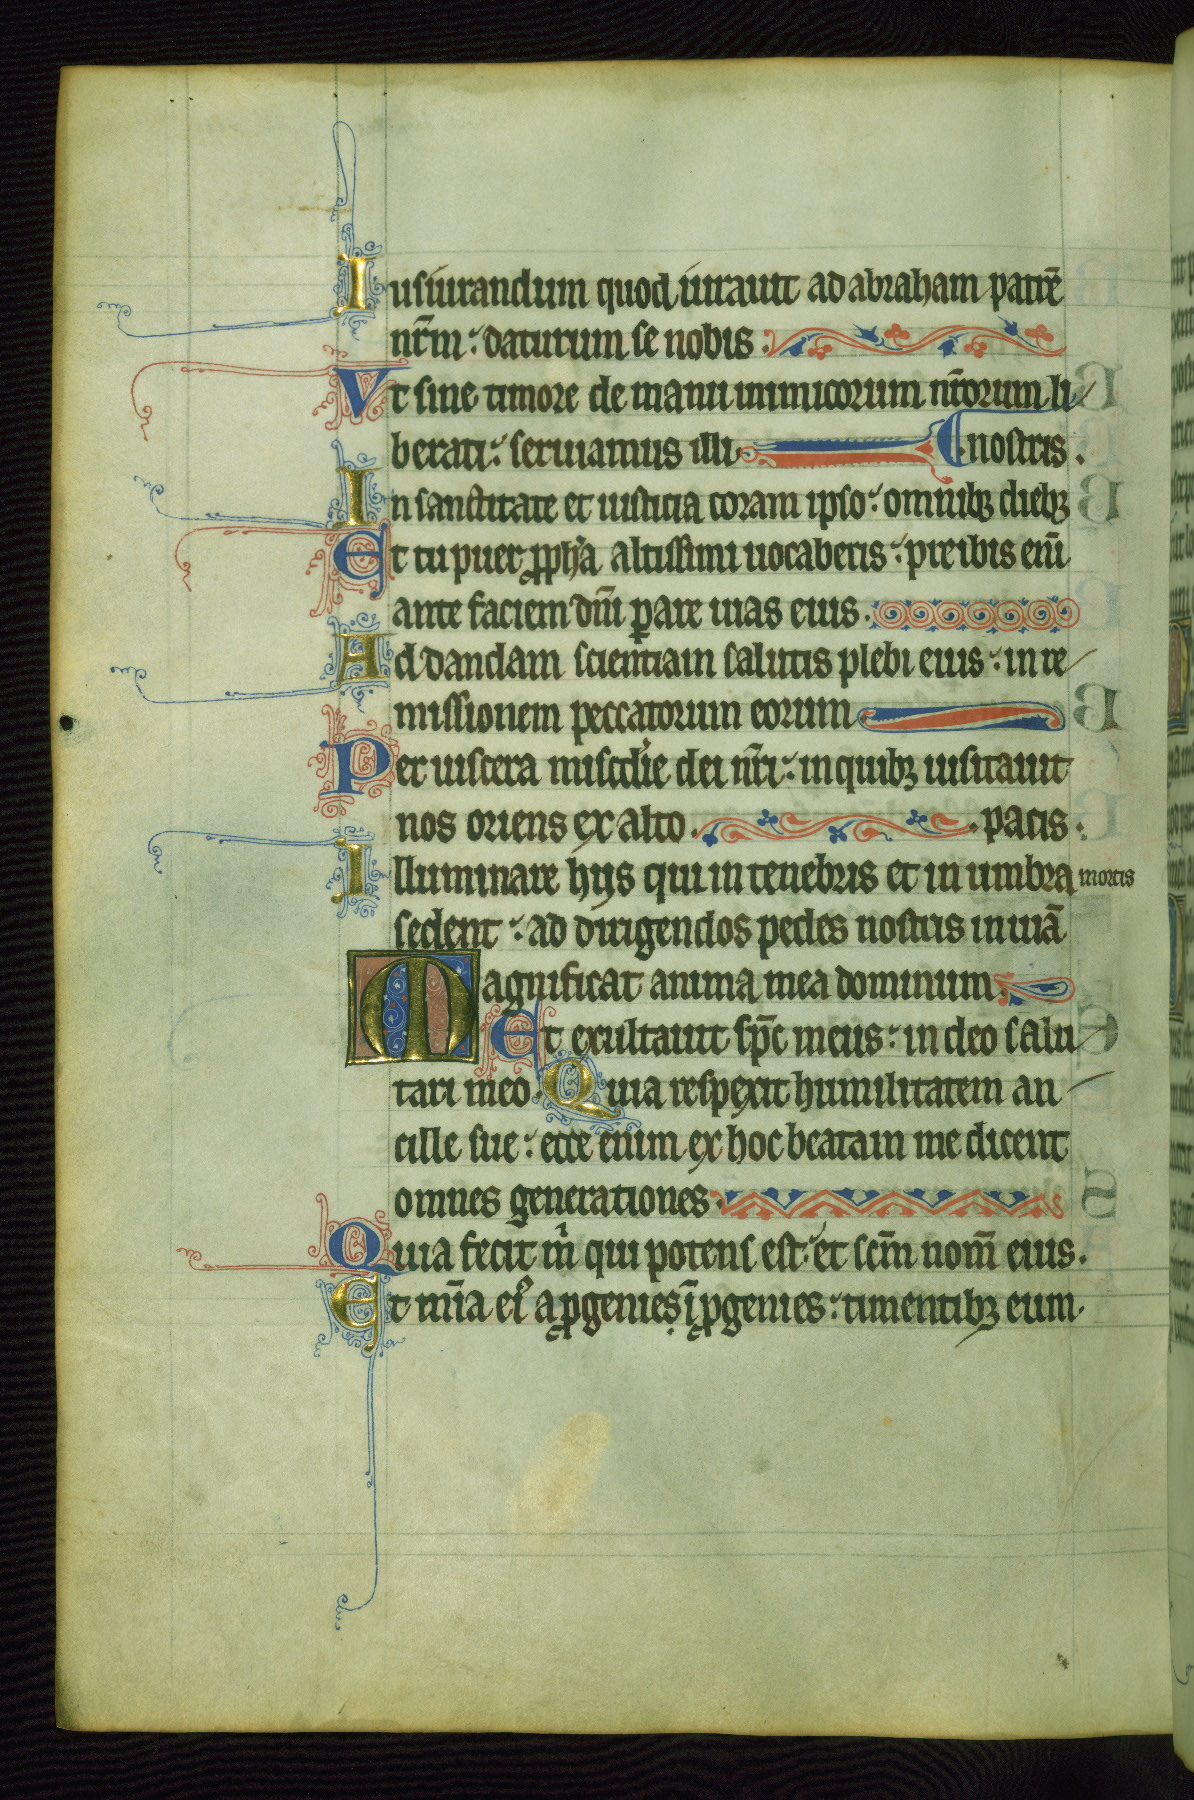 Iusiurandum quod iurauit ad abraham patrē
nr̄m : daturum se nobis .
Vt sine timore de manu inimicorum nr̄orum li
berati : seruiamus illi . nostris .
In sanctitate et iusticia coram ipso : omnibꝫ diebꝫ
Et tu puer ꝓph̄a altissimi uocaberis : preibis enī
ante faciem dn̄i ꝑare uias eius .
Ad dandam scientiam salutis plebi eius : in re
missionem peccatorum eorum
Per uiscera misc̄die dei nr̄i : in quibꝫ uisitauit
nos oriens ex alto . pacis .
Illuminare hijs qui in tenebris et in umbra mortis
sedent : ad dirigendos pedes nostris in uiā
Magnificat anima mea dominum .
Et exultauit sp̄c meus : in deo salu
tari meo . Quia respexit humilitatem an
cille sue : ecce enim ex hoc beatam me dicent
omnes generationes .
Quia fecit m̄ qui potens est : et scm̄ nom̄ eius .
Et mīa eiꝰ a ꝓgenies ī ꝓgenies : timentibꝫ eum .